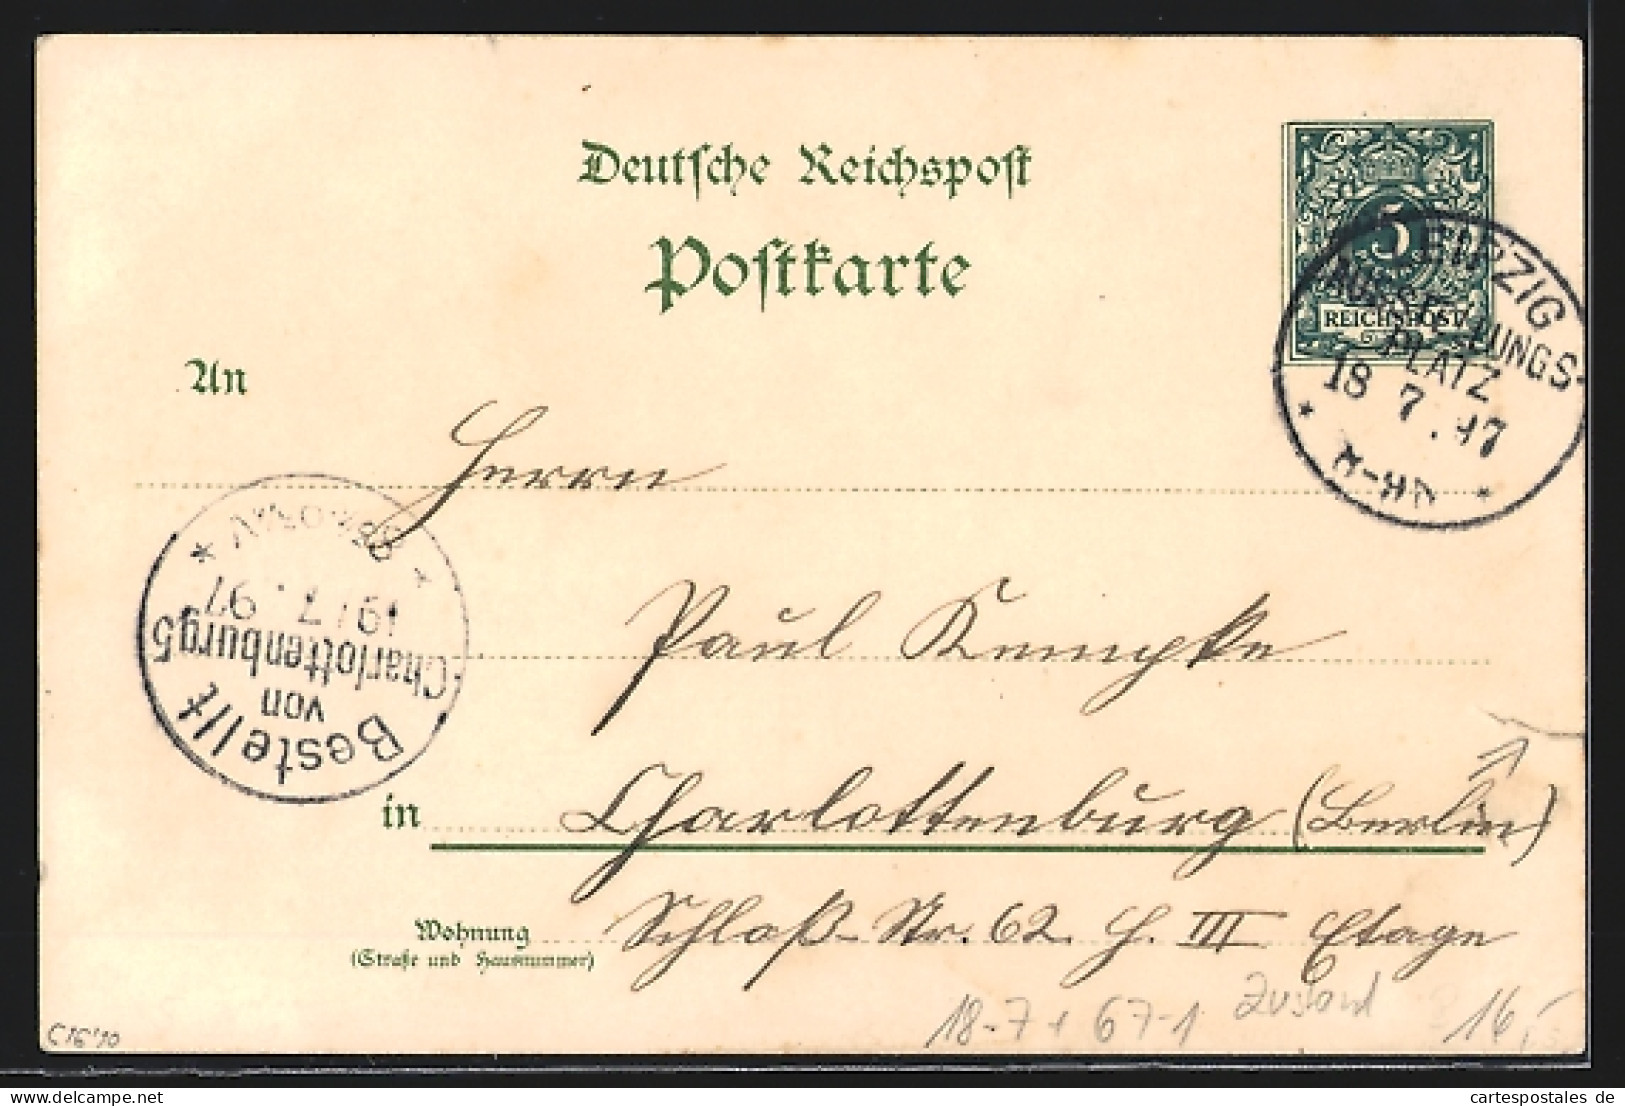 Deutsche Reichspost
Postkarte
5
REICHSPOST
LEIPZIG
AUSSTELLUNGS-
PLATZ
18 7. 97
An
Herrn
Paul
in Charlottenburg (Berlin)
Wohnung
(Straße und Hausnummer)
Schloß-Str. 62. H. III Etage
Bestellt
von
Charlottenburg 5
19/7. 97
18-7+ 67-1 Zustand 16,-
cartespostales de
www.delcampe.net